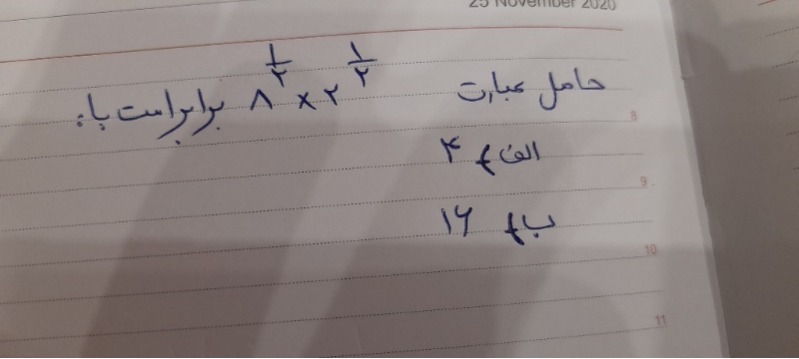 25 November 2020
حاصل عبارت ۸^(۱/۲) × ۲^(۱/۲) برابر است با:
الف) ۴
ب) ۱۶
8
9
10
11